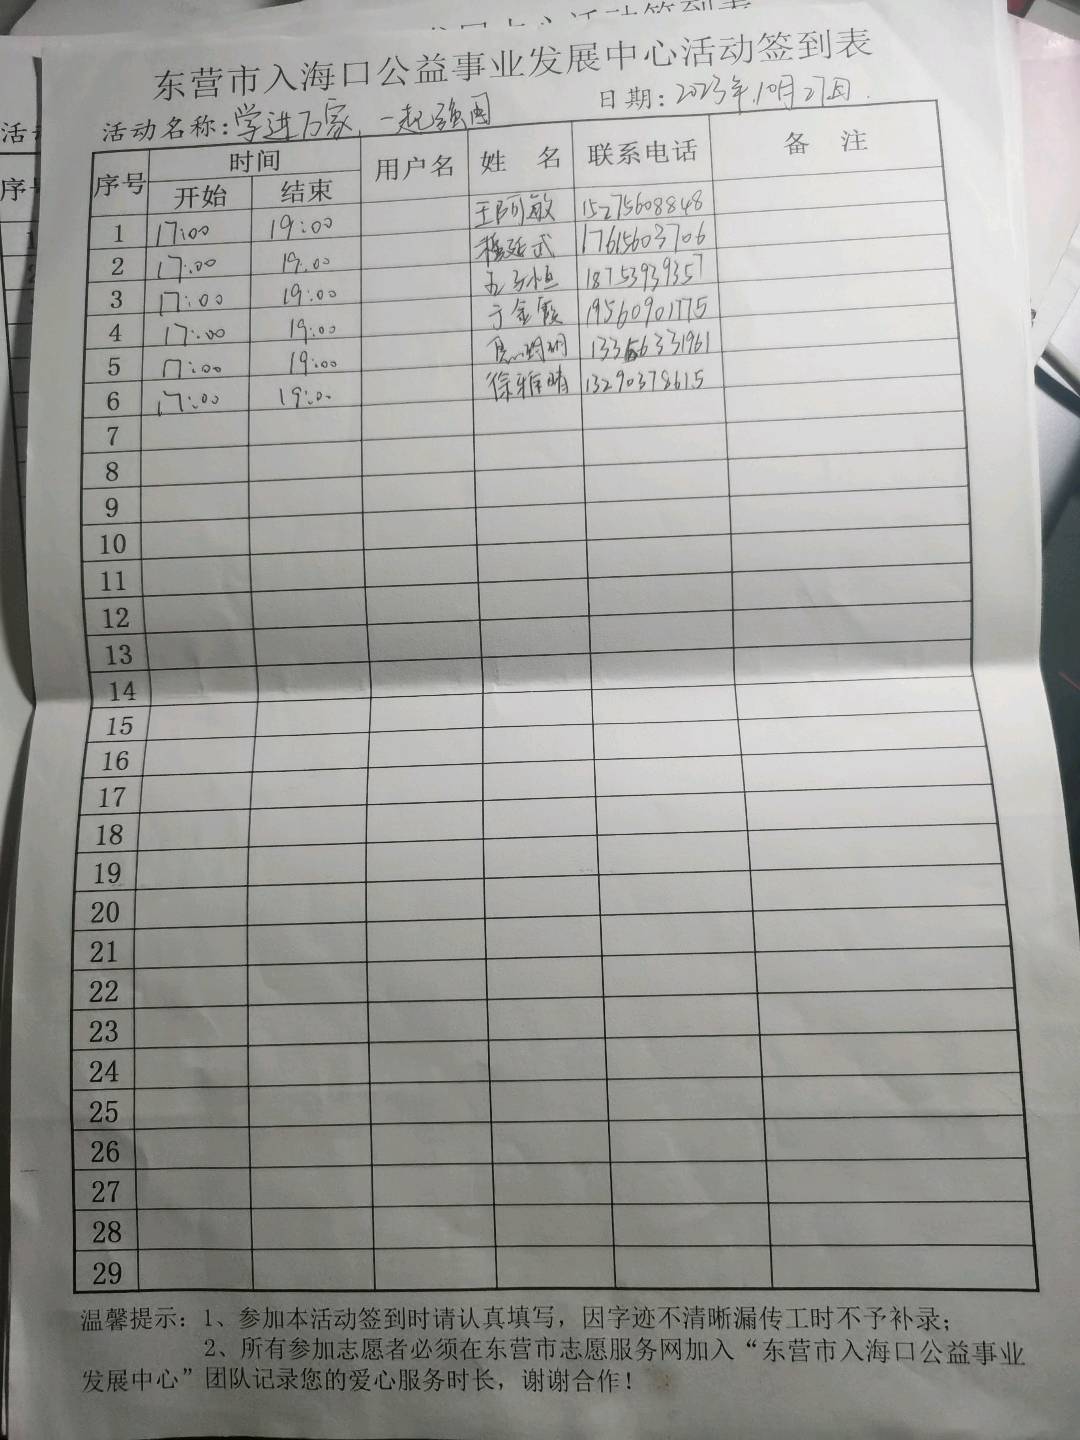 东营市入海口公益事业发展中心活动签到表
活动名称:学进万家,一起强国 日期:2023年10月27日.
序号 时间 用户名 姓 名 联系电话 备 注
开始 结束
1 17:00 19:00 王阿敏 15275608848
2 17:00 19:00 17615603706
3 17:00 19:00 18753939357
4 17:00 19:00 于金霞 19560901775
5 17:00 19:00 13356331961
6 17:00 19:00 徐雅晴 13290378615
7
8
9
10
11
12
13
14
15
16
17
18
19
20
21
22
23
24
25
26
27
28
29
温馨提示:1、参加本活动签到时请认真填写,因字迹不清晰漏传工时不予补录;
2、所有参加志愿者必须在东营市志愿服务网加入“东营市入海口公益事业
发展中心”团队记录您的爱心服务时长,谢谢合作!